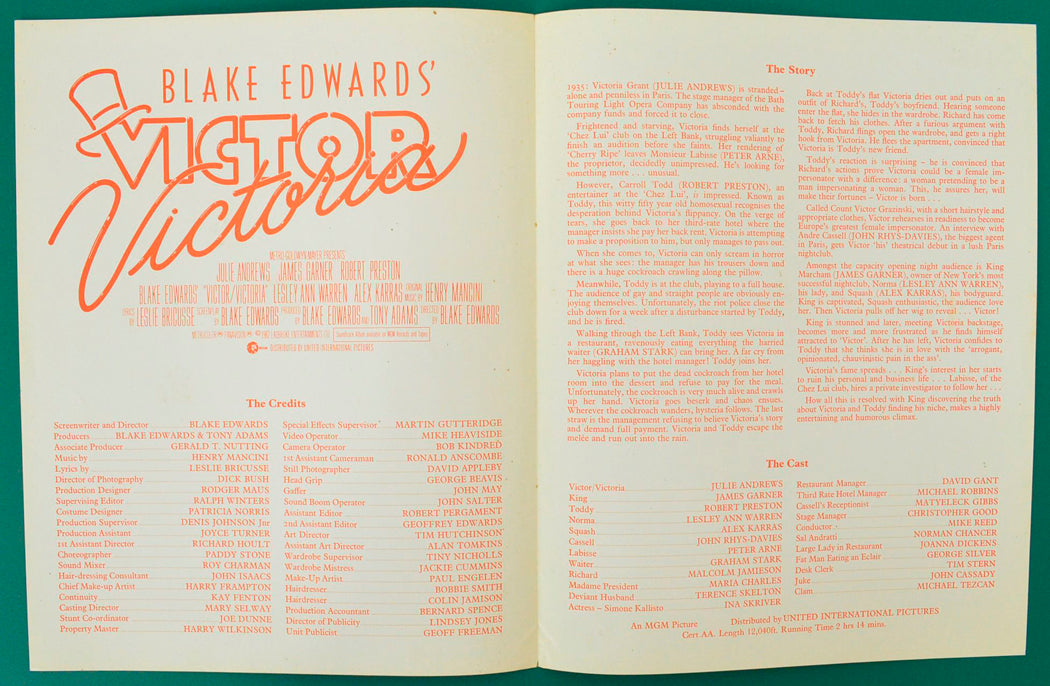 BLAKE EDWARDS'
VICTOR
Victoria
METRO-GOLDWYN-MAYER PRESENTS
JULIE ANDREWS JAMES GARNER ROBERT PRESTON
BLAKE EDWARDS' "VICTOR/VICTORIA" LESLEY ANN WARREN ALEX KARRAS ORIGINAL MUSIC BY HENRY MANCINI
LYRICS BY LESLIE BRICUSSE SCREENPLAY BY BLAKE EDWARDS PRODUCED BY BLAKE EDWARDS AND TONY ADAMS DIRECTED BY BLAKE EDWARDS
Soundtrack Album available on MGM Records and Tapes
DISTRIBUTED BY UNITED INTERNATIONAL PICTURES
The Credits
Screenwriter and Director BLAKE EDWARDS
Producers BLAKE EDWARDS & TONY ADAMS
Associate Producer GERALD T. NUTTING
Music by HENRY MANCINI
Lyrics by LESLIE BRICUSSE
Director of Photography DICK BUSH
Production Designer RODGER MAUS
Supervising Editor RALPH WINTERS
Costume Designer PATRICIA NORRIS
Production Supervisor DENIS JOHNSON Jnr
Production Assistant JOYCE TURNER
1st Assistant Director RICHARD HOULT
Choreographer PADDY STONE
Sound Mixer ROY CHARMAN
Hair-dressing Consultant JOHN ISAACS
Chief Make-up Artist HARRY FRAMPTON
Continuity KAY FENTON
Casting Director MARY SELWAY
Stunt Co-ordinator JOE DUNNE
Property Master HARRY WILKINSON
Special Effects Supervisor MARTIN GUTTERIDGE
Video Operator MIKE HEAVISIDE
Camera Operator BOB KINDRED
1st Assistant Cameraman RONALD ANSCOMBE
Still Photographer DAVID APPLEBY
Head Grip GEORGE BEAVIS
Gaffer JOHN MAY
Sound Boom Operator JOHN SALTER
Assistant Editor ROBERT PERGAMENT
2nd Assistant Editor GEOFFREY EDWARDS
Art Director TIM HUTCHINSON
Assistant Art Director ALAN TOMKINS
Wardrobe Supervisor TINY NICHOLLS
Wardrobe Mistress JACKIE CUMMINS
Make-Up Artist PAUL ENGELEN
Hairdresser BOBBIE SMITH
Hairdresser COLIN JAMISON
Production Accountant BERNARD SPENCE
Director of Publicity LINDSEY JONES
Unit Publicist GEOFF FREEMAN
The Story
1935: Victoria Grant (JULIE ANDREWS) is stranded –
alone and penniless in Paris. The stage manager of the Bath
Touring Light Opera Company has absconded with the
company funds and forced it to close.
Frightened and starving, Victoria finds herself at the
'Chez Lui' club on the Left Bank, struggling valiantly to
finish an audition before she faints. Her rendering of
'Cherry Ripe' leaves Monsieur Labisse (PETER ARNE),
the proprietor, decidedly unimpressed. He's looking for
something more . . . unusual.
However, Carroll Todd (ROBERT PRESTON), an
entertainer at the 'Chez Lui', is impressed. Known as
Toddy, this witty fifty year old homosexual recognises the
desperation behind Victoria's flippancy. On the verge of
tears, she goes back to her third-rate hotel where the
manager insists she pay her back rent. Victoria is attempting
to make a proposition to him, but only manages to pass out.
When she comes to, Victoria can only scream in horror
at what she sees: the manager has his trousers down and
there is a huge cockroach crawling along the pillow.
Meanwhile, Toddy is at the club, playing to a full house.
The audience of gay and straight people are obviously en-
joying themselves. Unfortunately, the riot police close the
club down for a week after a disturbance started by Toddy,
and he is fired.
Walking through the Left Bank, Toddy sees Victoria in
a restaurant, ravenously eating everything the harried
waiter (GRAHAM STARK) can bring her. A far cry from
her haggling with the hotel manager! Toddy joins her.
Victoria plans to put the dead cockroach from her hotel
room into the dessert and refuse to pay for the meal.
Unfortunately, the cockroach is very much alive and crawls
up her hand. Victoria goes beserk and chaos ensues.
Wherever the cockroach wanders, hysteria follows. The last
straw is the management refusing to believe Victoria's story
and demand full payment. Victoria and Toddy escape the
melée and run out into the rain.
Back at Toddy's flat Victoria dries out and puts on an
outfit of Richard's, Toddy's boyfriend. Hearing someone
enter the flat, she hides in the wardrobe. Richard has come
back to fetch his clothes. After a furious argument with
Toddy, Richard flings open the wardrobe, and gets a right
hook from Victoria. He flees the apartment, convinced that
Victoria is Toddy's new friend.
Toddy's reaction is surprising – he is convinced that
Richard's actions prove Victoria could be a female im-
personator with a difference: a woman pretending to be a
man impersonating a woman. This, he assures her, will
make their fortunes – Victor is born . . .
Called Count Victor Grazinski, with a short hairstyle and
appropriate clothes, Victor rehearses in readiness to become
Europe's greatest female impersonator. An interview with
Andre Cassell (JOHN RHYS-DAVIES), the biggest agent
in Paris, gets Victor 'his' theatrical debut in a lush Paris
nightclub.
Amongst the capacity opening night audience is King
Marchan (JAMES GARNER), owner of New York's most
successful nightclub, Norma (LESLEY ANN WARREN),
his lady, and Squash (ALEX KARRAS), his bodyguard.
King is captivated, Squash enthusiastic, the audience love
her. Then Victoria pulls off her wig to reveal . . . Victor!
King is stunned and later, meeting Victoria backstage,
becomes more and more frustrated as he finds himself
attracted to 'Victor'. After he has left, Victoria confides to
Toddy that she thinks she is in love with the 'arrogant,
opinionated, chauvinistic pain in the ass'.
Victoria's fame spreads . . . King's interest in her starts
to ruin his personal and business life . . . Labisse, of the
Chez Lui club, hires a private investigator to follow her . . .
How all this is resolved with King discovering the truth
about Victoria and Toddy finding his niche, makes a highly
entertaining and humorous climax.
The Cast
Victor/Victoria JULIE ANDREWS
King JAMES GARNER
Toddy ROBERT PRESTON
Norma LESLEY ANN WARREN
Squash ALEX KARRAS
Cassell JOHN RHYS-DAVIES
Labisse PETER ARNE
Waiter GRAHAM STARK
Richard MALCOLM JAMIESON
Madame President MARIA CHARLES
Deviant Husband TERENCE SKELTON
Actress – Simone Kallisto INA SKRIVER
Restaurant Manager DAVID GANT
Third Rate Hotel Manager MICHAEL ROBBINS
Cassell's Receptionist MATYELECK GIBBS
Stage Manager CHRISTOPHER GOOD
Conductor MIKE REED
Sal Andratti NORMAN CHANCER
Large Lady in Restaurant JOANNA DICKENS
Fat Man Eating an Eclair GEORGE SILVER
Desk Clerk TIM STERN
Juke JOHN CASSADY
Clam MICHAEL TEZCAN
An MGM Picture Distributed by UNITED INTERNATIONAL PICTURES
Cert AA. Length 12,040ft. Running Time 2 hrs 14 mins.